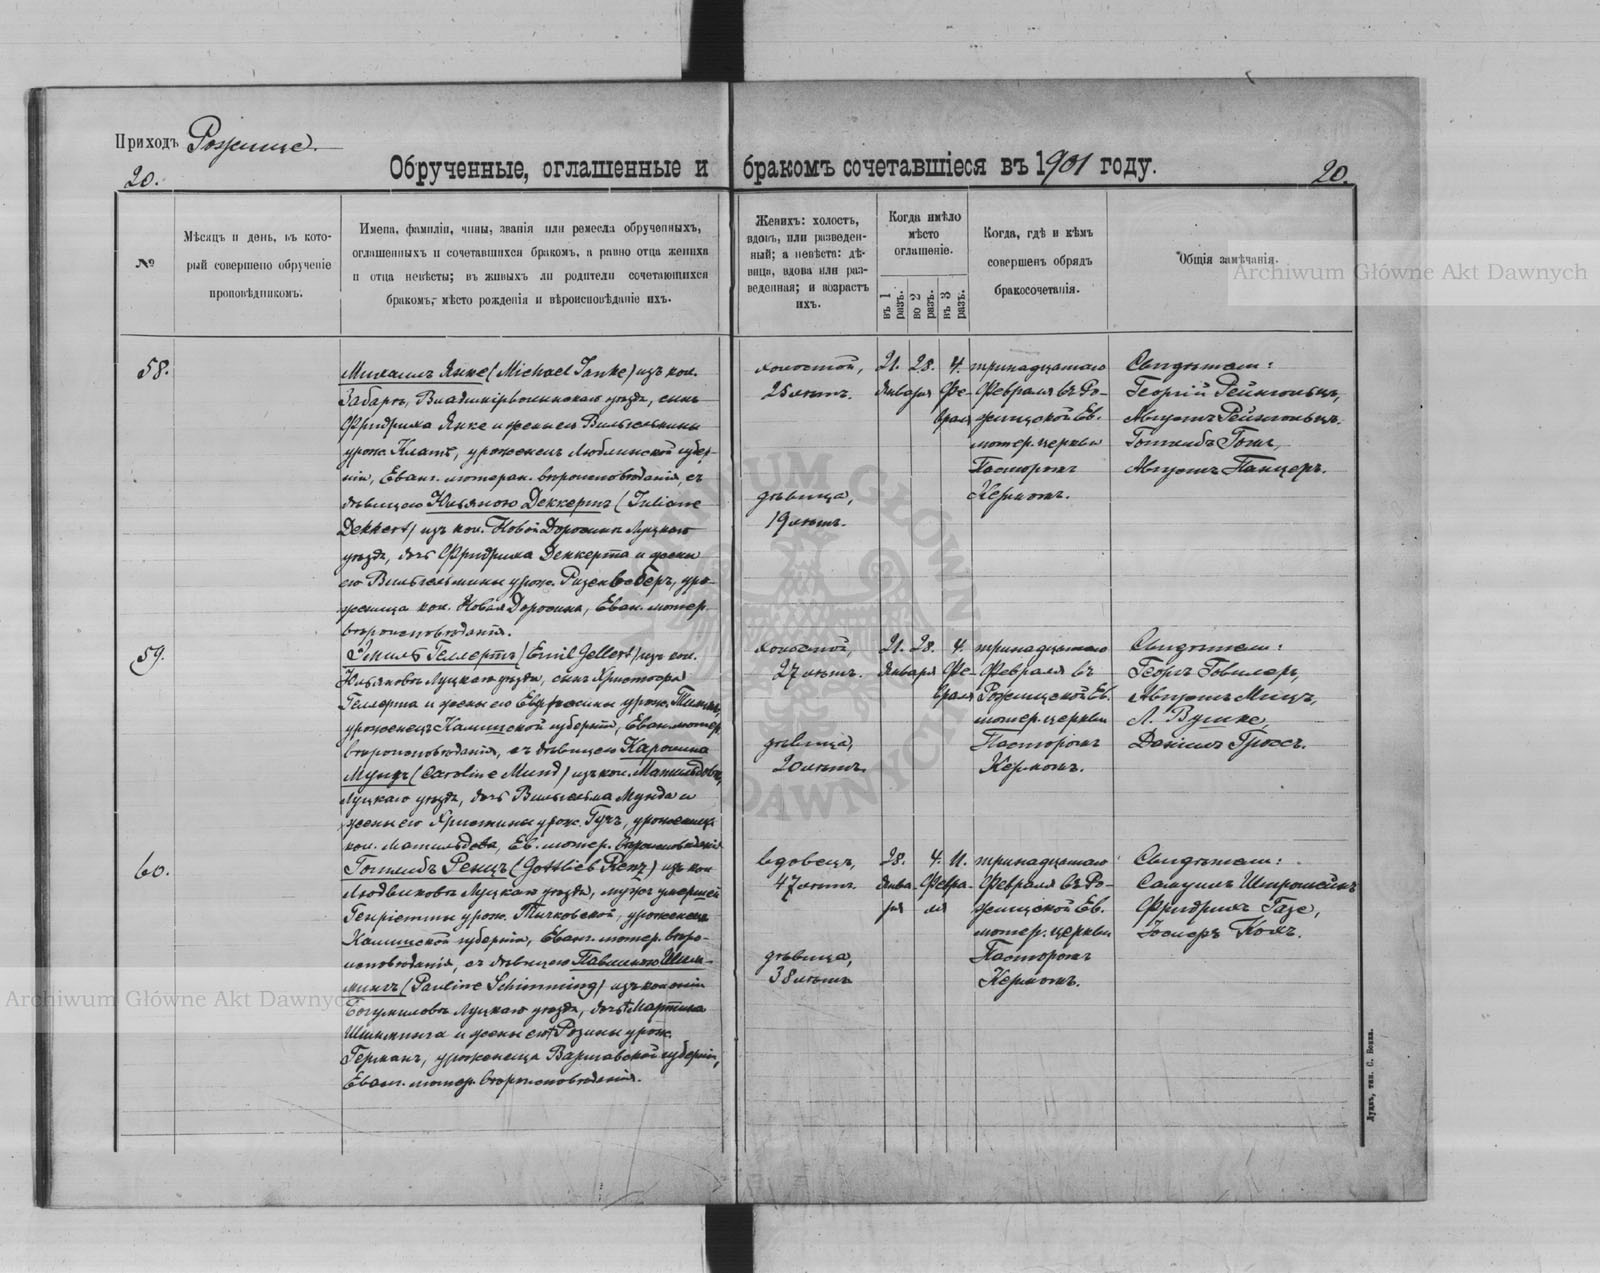 Приходъ Рожище.
20.
Обрученные, оглашенные и бракомъ сочетавшіеся въ 1901 году.
20.
№
Мѣсяцъ и день, въ кото-
рый совершено обрученіе
проповѣдникомъ.
Имена, фамиліи, чины, званія или ремесла обрученныхъ,
оглашенныхъ и сочетавшихся бракомъ, а равно отца жениха
и отца невѣсты; въ живыхъ ли родители сочетающихся
бракомъ, мѣсто рожденія и вѣроисповѣданіе ихъ.
Женихъ: холостъ,
вдовъ, или разведен-
ный; а невѣста: дѣ-
вица, вдова или раз-
веденная; и возрастъ
ихъ.
Когда имѣло
мѣсто
оглашеніе.
въ 1
разъ.
во 2
разъ.
въ 3
разъ.
Когда, гдѣ и кѣмъ
совершенъ обрядъ
бракосочетанія.
Общія замѣчанія.
Archiwum Główne Akt Dawnych
58.
Михаилъ Янке (Michael Janke) изъ кол.
Забара, Владимірволынскаго уѣзда, сынъ
Фридриха Янке и жены его Вильгельмины
урож. Клатъ, уроженецъ Люблинской губер-
ніи, Еванг. лютеран. вѣроисповѣданія, съ
дѣвицею Юльяною Деккертъ (Juliane
Dekkert) изъ кол. Новой Доросини Луцкаго
уѣзда, дочь Фридриха Деккерта и жены
его Вильгельмины урож. Ризенвеберъ, уро-
женица кол. Новая Доросиня, Еван. лютер.
вѣроисповѣданія.
холостой,
25 лѣтъ.
дѣвица,
19 лѣтъ.
21. 28. 4.
Января Фе-
враля
тринадцатаго
Февраля въ Ро-
жищской Ев.
лютер. церкви
Пасторомъ
Кермомъ.
Свидѣтели:
Георгій Рейнгольцъ,
Августъ Рейнгольцъ.
Готлибъ Гонъ,
Августъ Панцеръ.
59.
Эмиль Геллертъ (Emil Gellert) изъ кол.
Юльяновъ Луцкаго уѣзда, сынъ Христофа
Геллерта и жены его Евфросины урож. Тимъ,
уроженецъ Калишской губерніи, Еван. лютер.
вѣроисповѣданія, съ дѣвицею Каролина
Мундъ (Caroline Mund) изъ кол. Матильдовъ,
Луцкаго уѣзда, дочь Вильгельма Мунда и
жены его Христины урож. Гучъ, уроженица
кол. Матильдова, Ев. лютер. вѣроисповѣданія
холостой,
27 лѣтъ.
дѣвица,
20 лѣтъ.
21. 28. 4.
Января Фе-
враля
тринадцатаго
Февраля въ
Рожищской Ев.
лютер. церкви
Пасторомъ
Кермомъ.
Свидѣтели:
Георгъ Говилеръ,
Августъ Мицъ,
Л. Вушке,
Даніилъ Гроссъ.
60.
Готлибъ Ренцъ (Gottlieb Renz) изъ кол
Людвиковъ Луцкаго уѣзда, мужъ умершей
Генріетты урож. Тычковской, уроженецъ
Калишской губерніи, Еванг. лютер. вѣро-
исповѣданія, съ дѣвицею Павлиною Шим-
мингъ (Pauline Schimming) изъ колоніи
Богумиловъ Луцкаго уѣзда, дочь Мартина
Шимминга и жены его Розины урож.
Германъ, уроженица Варшавской губерніи,
Еванг. лютер. вѣроисповѣданія.
вдовецъ,
47 лѣтъ.
дѣвица,
38 лѣтъ
28. 4. 11.
Янва- Февра-
ря ля
тринадцатаго
Февраля въ Ро-
жищской Ев.
лютер. церкви
Пасторомъ
Кермомъ.
Свидѣтели:
Самуилъ Штромейнъ
Фридрихъ Газе,
ІосифъКоль.
Archiwum Główne Akt Dawnych
Луцкъ, тип. С. Бокха.